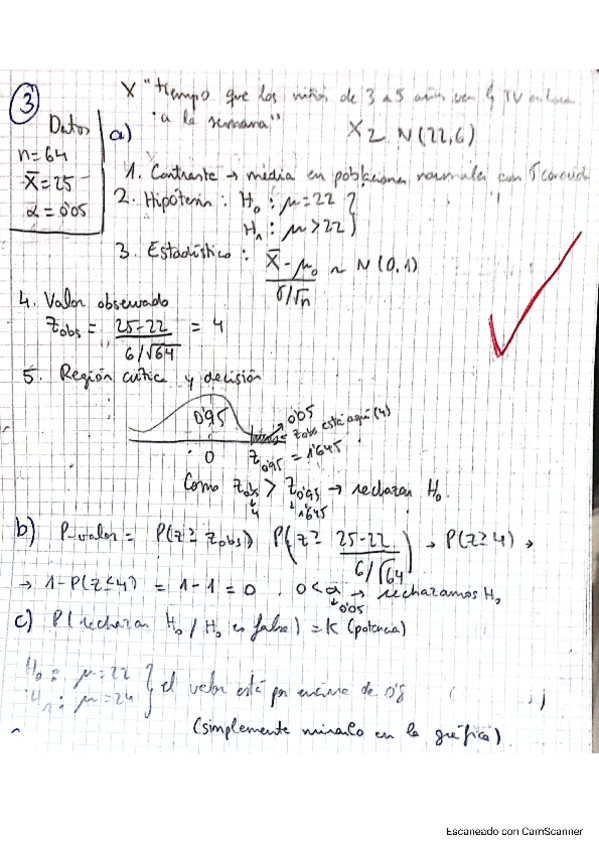 3
X "tiempo que los niños de 3 a 5 años ven la TV en
a la semana"
X ~ N(22,6)
Datos
n=64
X̄=25
α=0'05
a)
1. Contraste → media en poblaciones normales con σ conocida
2. Hipótesis : H₀ : μ=22
H₁ : μ>22
3. Estadístico : X̄-μ₀ / σ/√n ~ N(0,1)
4. Valor observado
Zobs = 25-22 / 6/√64 = 4
5. Región crítica y decisión
0'95
0'05
Zobs está aquí (4)
0
Z0'95 = 1'645
Como Zobs > Z0'95 → rechazan H₀.
4 1'645
b) P-valor = P(Z≥Zobs) P(Z≥ 25-22 / 6/√64) → P(Z≥4) →
→ 1-P(Z≤4) = 1-1=0 . 0<α → rechazamos H₀
0'05
c) P(rechazar H₀ / H₀ es falso) = K (potencia)
H₀ : μ=22
H₁ : μ=24
el valor está por encima de 0'8
(simplemente mirarlo en la gráfica)
Escaneado con CamScanner